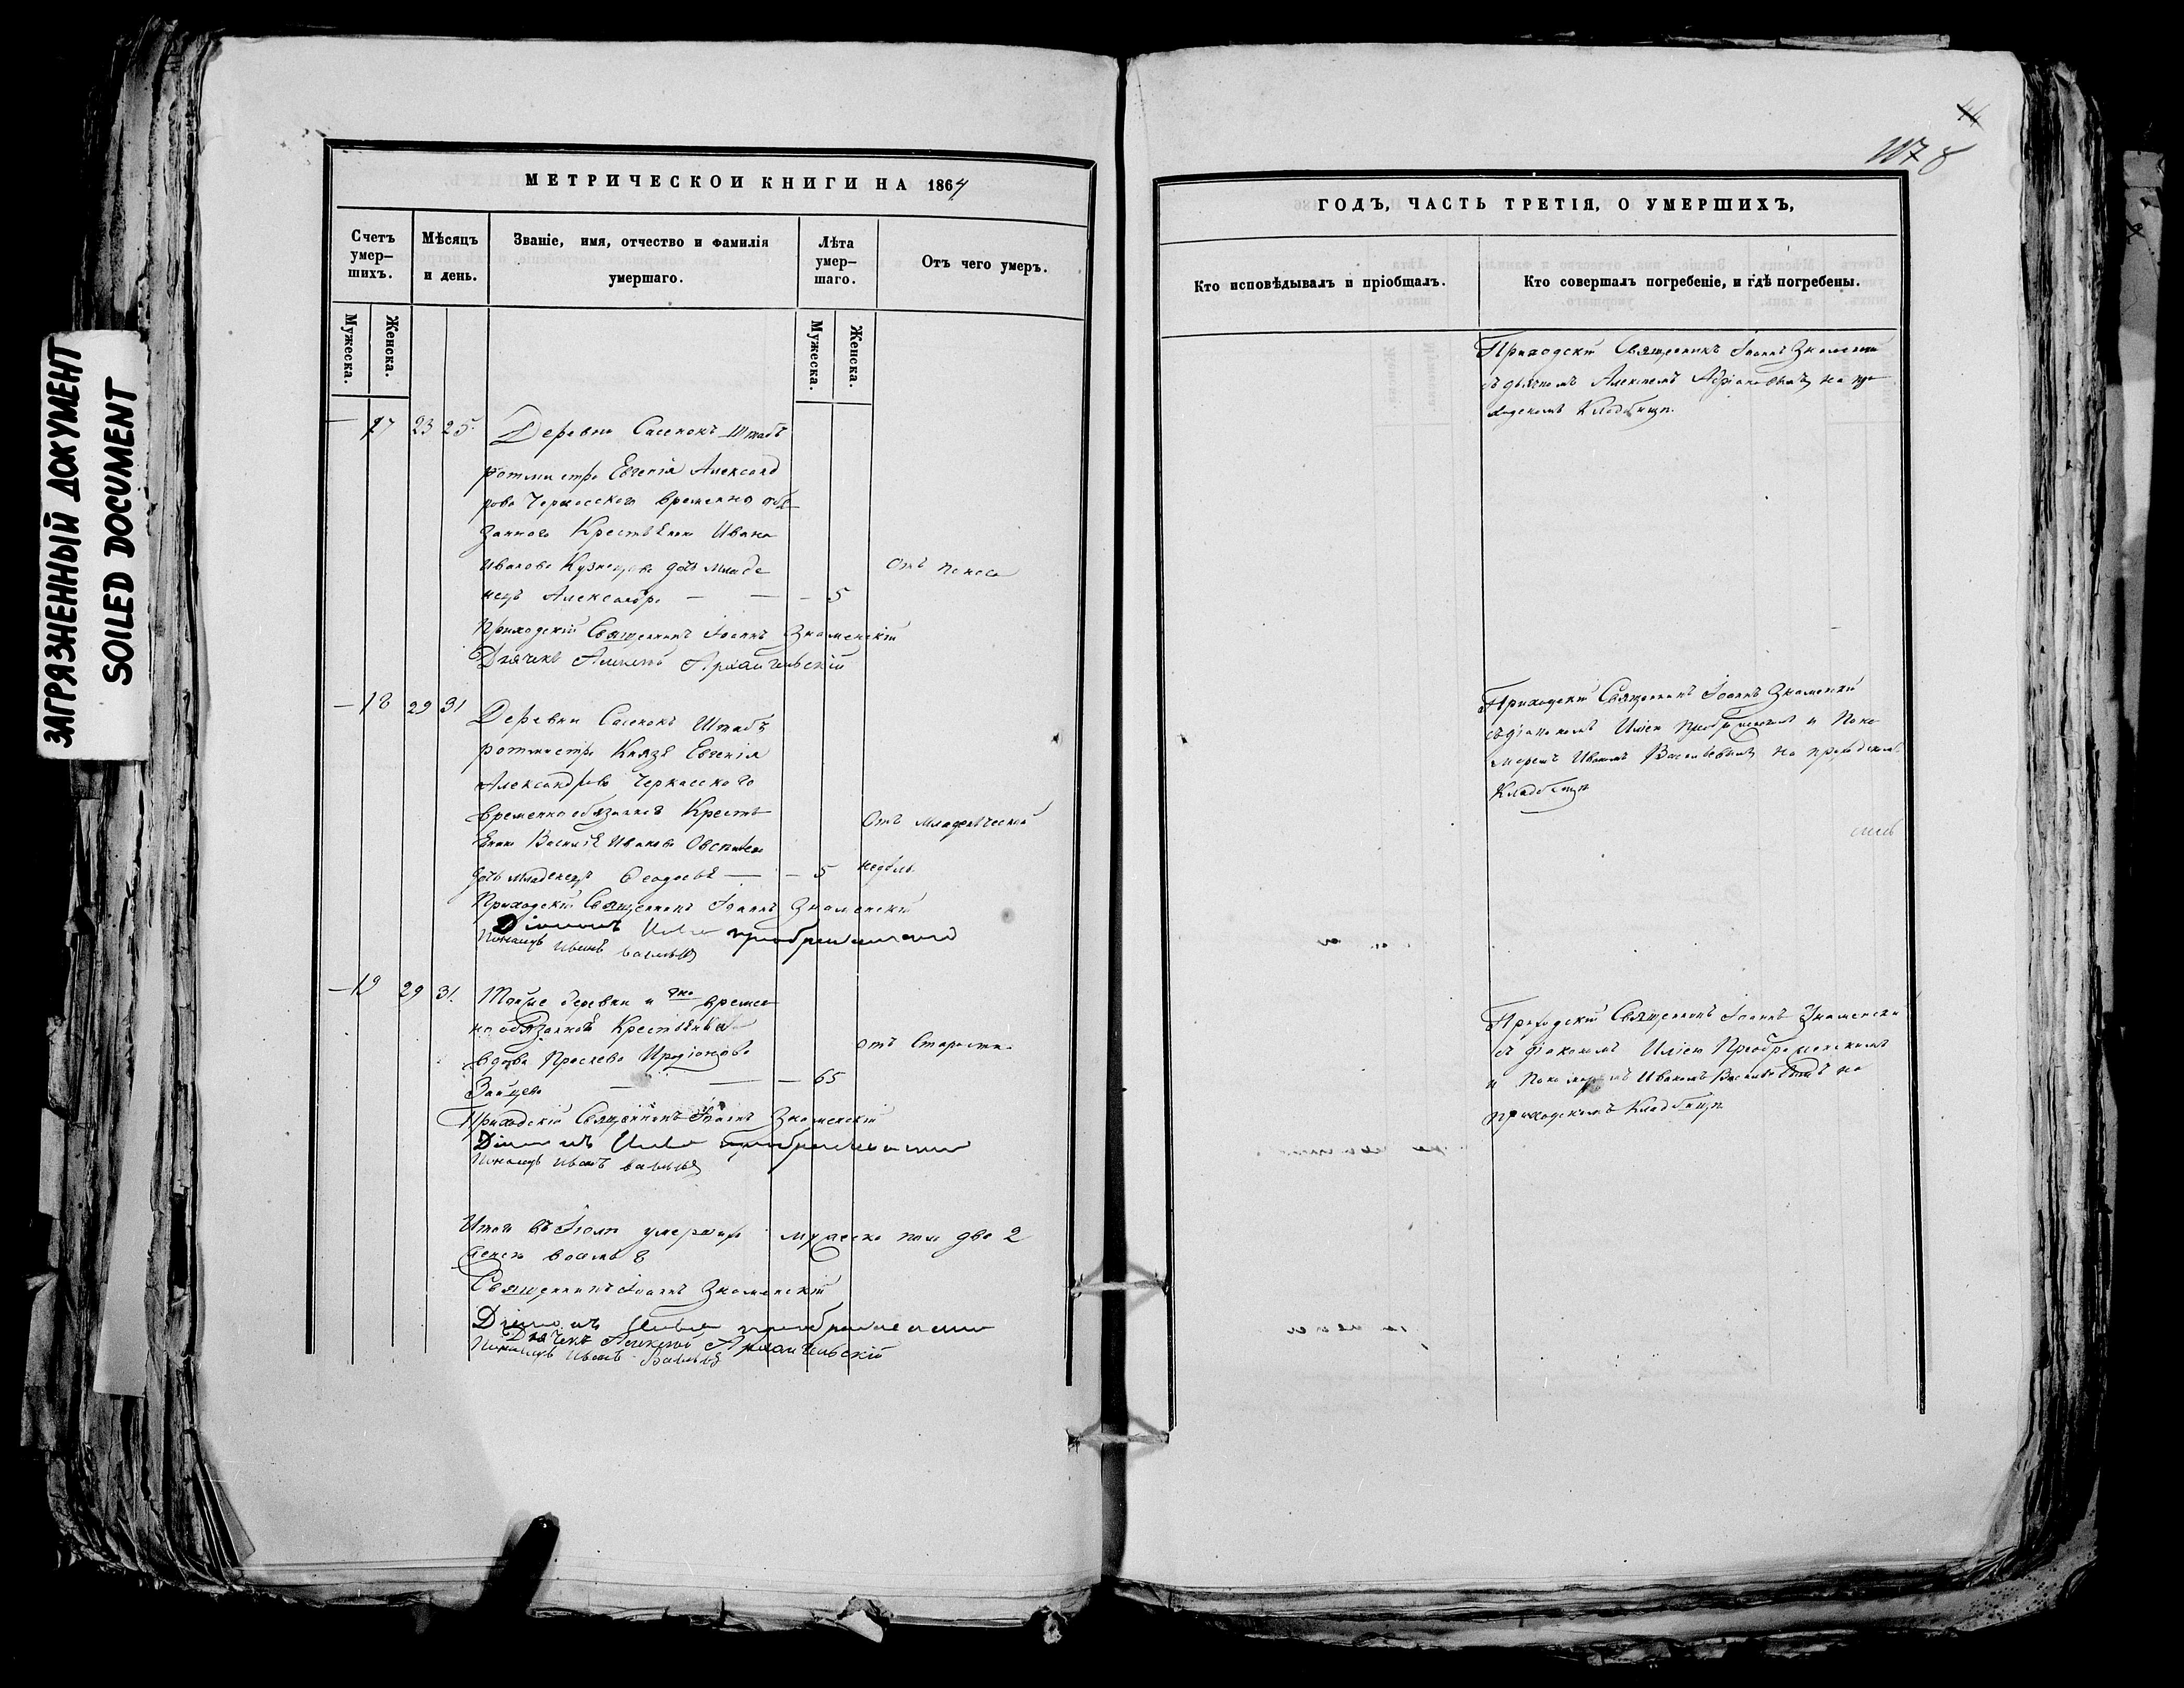 ЗАГРЯЗНЕННЫЙ ДОКУМЕНТ
SOILED DOCUMENT
МЕТРИЧЕСКОИ КНИГИ НА 1864
Счетъ умер-шихъ.
Мѣсяцъ и день.
Званіе, имя, отчество и фамилія умершаго.
Лѣта умер-шаго.
Отъ чего умеръ.
Мужеска.
Женска.
Мужеска.
Женска.
— 17 23 25. Деревни Сасенокъ Штабъ
ротмистра Евгенія Александ
рова Черкасскаго временно обя
заннаго Крестьянина Ивана
Иванова Кузнецова дочь младе
нецъ Александра — — — 5
Отъ поноса
Приходскій Священникъ Іоаннъ Знаменскій
Дьячекъ Алексѣй Архангельскій
— 18 29 31 Деревни Сасенокъ Штабъ
ротмистра Князя Евгенія
Александрова Черкасскаго
временнообязаннаго Кресть
янина Василія Иванова
дочь младенецъ Феодосья — — 5
Отъ младенческой
Приходскій Священникъ Іоаннъ Знаменскій
Діаконъ Илія Преображенскій
Пономарь Иванъ Васильевъ
— 19 29 31. Тойже деревни и временно
обязанной Крестьянина
вдова Иродіонова
Зайцева — — — 65
отъ старости
Приходскій Священникъ Іоаннъ Знаменскій
Діаконъ Илія Преображенскій
Пономарь Иванъ Васильевъ
Итого въ Іюлѣ умершихъ мужеска пола два 2
женска восемь 8
Священникъ Іоаннъ Знаменскій
Діаконъ Илія Преображенскій
Дьячекъ Алексѣй Архангельскій
Пономарь Иванъ Васильевъ
1078
ГОДЪ, ЧАСТЬ ТРЕТІЯ, О УМЕРШИХЪ,
Кто исповѣдывалъ и пріобщалъ.
Кто совершалъ погребеніе, и гдѣ погребены.
Приходскій Священникъ Іоаннъ Знаменскій
съ дьячкомъ Алексѣемъ на при
ходскомъ Кладбищѣ.
Приходскій Священникъ Іоаннъ Знаменскій
съ діакономъ Иліею Преображенскимъ и Поно
маремъ Иваномъ Васильевымъ на приходскомъ
Кладбищѣ
Приходскій Священникъ Іоаннъ Знаменскій
съ діакономъ Иліею Преображенскимъ
и Пономаремъ Иваномъ Васильевымъ на
приходскомъ Кладбищѣ